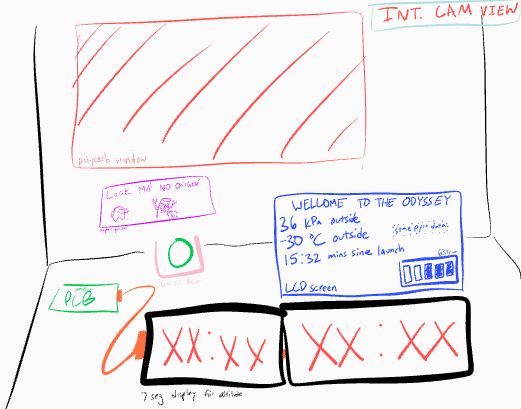 INT. CAM VIEW
polycarb window
LOOK MA! NO OXYGEN!
WELCOME TO THE ODYSSEY
36 kPa outside
-30 °C outside
(some pyro data)
15:32 mins sine launch
63%
LCD screen
PCB
XX:XX
XX:XX
7 seg display for altitude